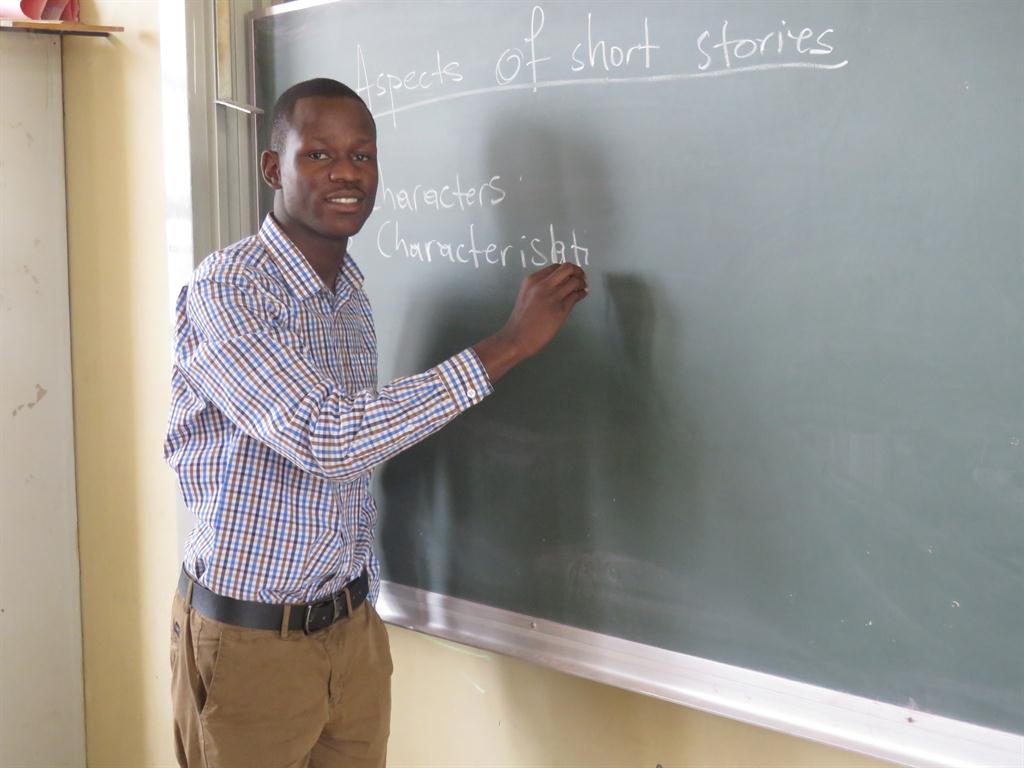 Aspects Of short stories
haracters
Characterisati